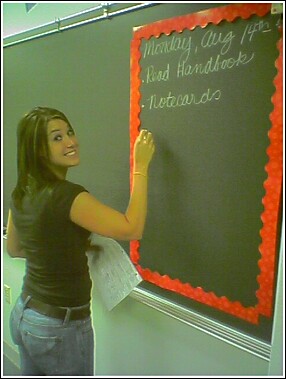 Monday, Aug 14th
. Read Handbook
. Notecards